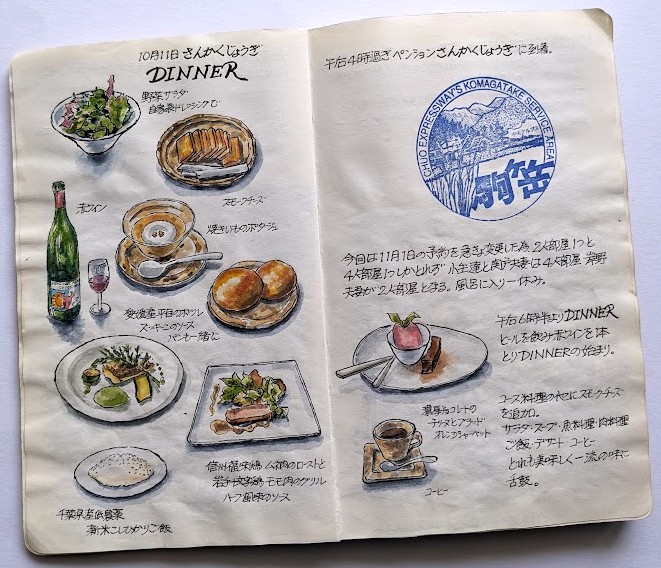 10月11日 さんかくじょうぎ
DINNER
野菜サラダ
自家製ドレッシングで
スモークチーズ
赤ワイン
焼きいものポタージュ
愛媛産平目のポワレ
ズッキーニのソース
パンも一緒に
信州福味鶏ムネ肉のローストと
岩手文殊鶏モモ肉のグリル
ハーブ風味のソース
千葉県産低農薬
新米こしひかりご飯
午后4時過ぎペンションさんかくじょうぎに到着。
CHUO EXPRESSWAY'S KOMAGATAKE SERVICE AREA
駒ヶ岳
今回は11月1日の予約を急きょ変更した為2人部屋1つと
4人部屋1つしかとれず 小生達と関戸夫妻は4人部屋
夫妻が2人部屋となる。風呂に入り一休み。
午后6時半よりDINNER
ビールを飲み赤ワインを1本
とりDINNERの始まり。
濃厚チョコレートの
テリーヌとブラッド
オレンジシャーベット
コース料理の他にスモークチーズ
を追加。
サラダ・スープ・魚料理・肉料理
ご飯・デザート・コーヒー
どれも美味しく一流の味に
舌鼓。
コーヒー